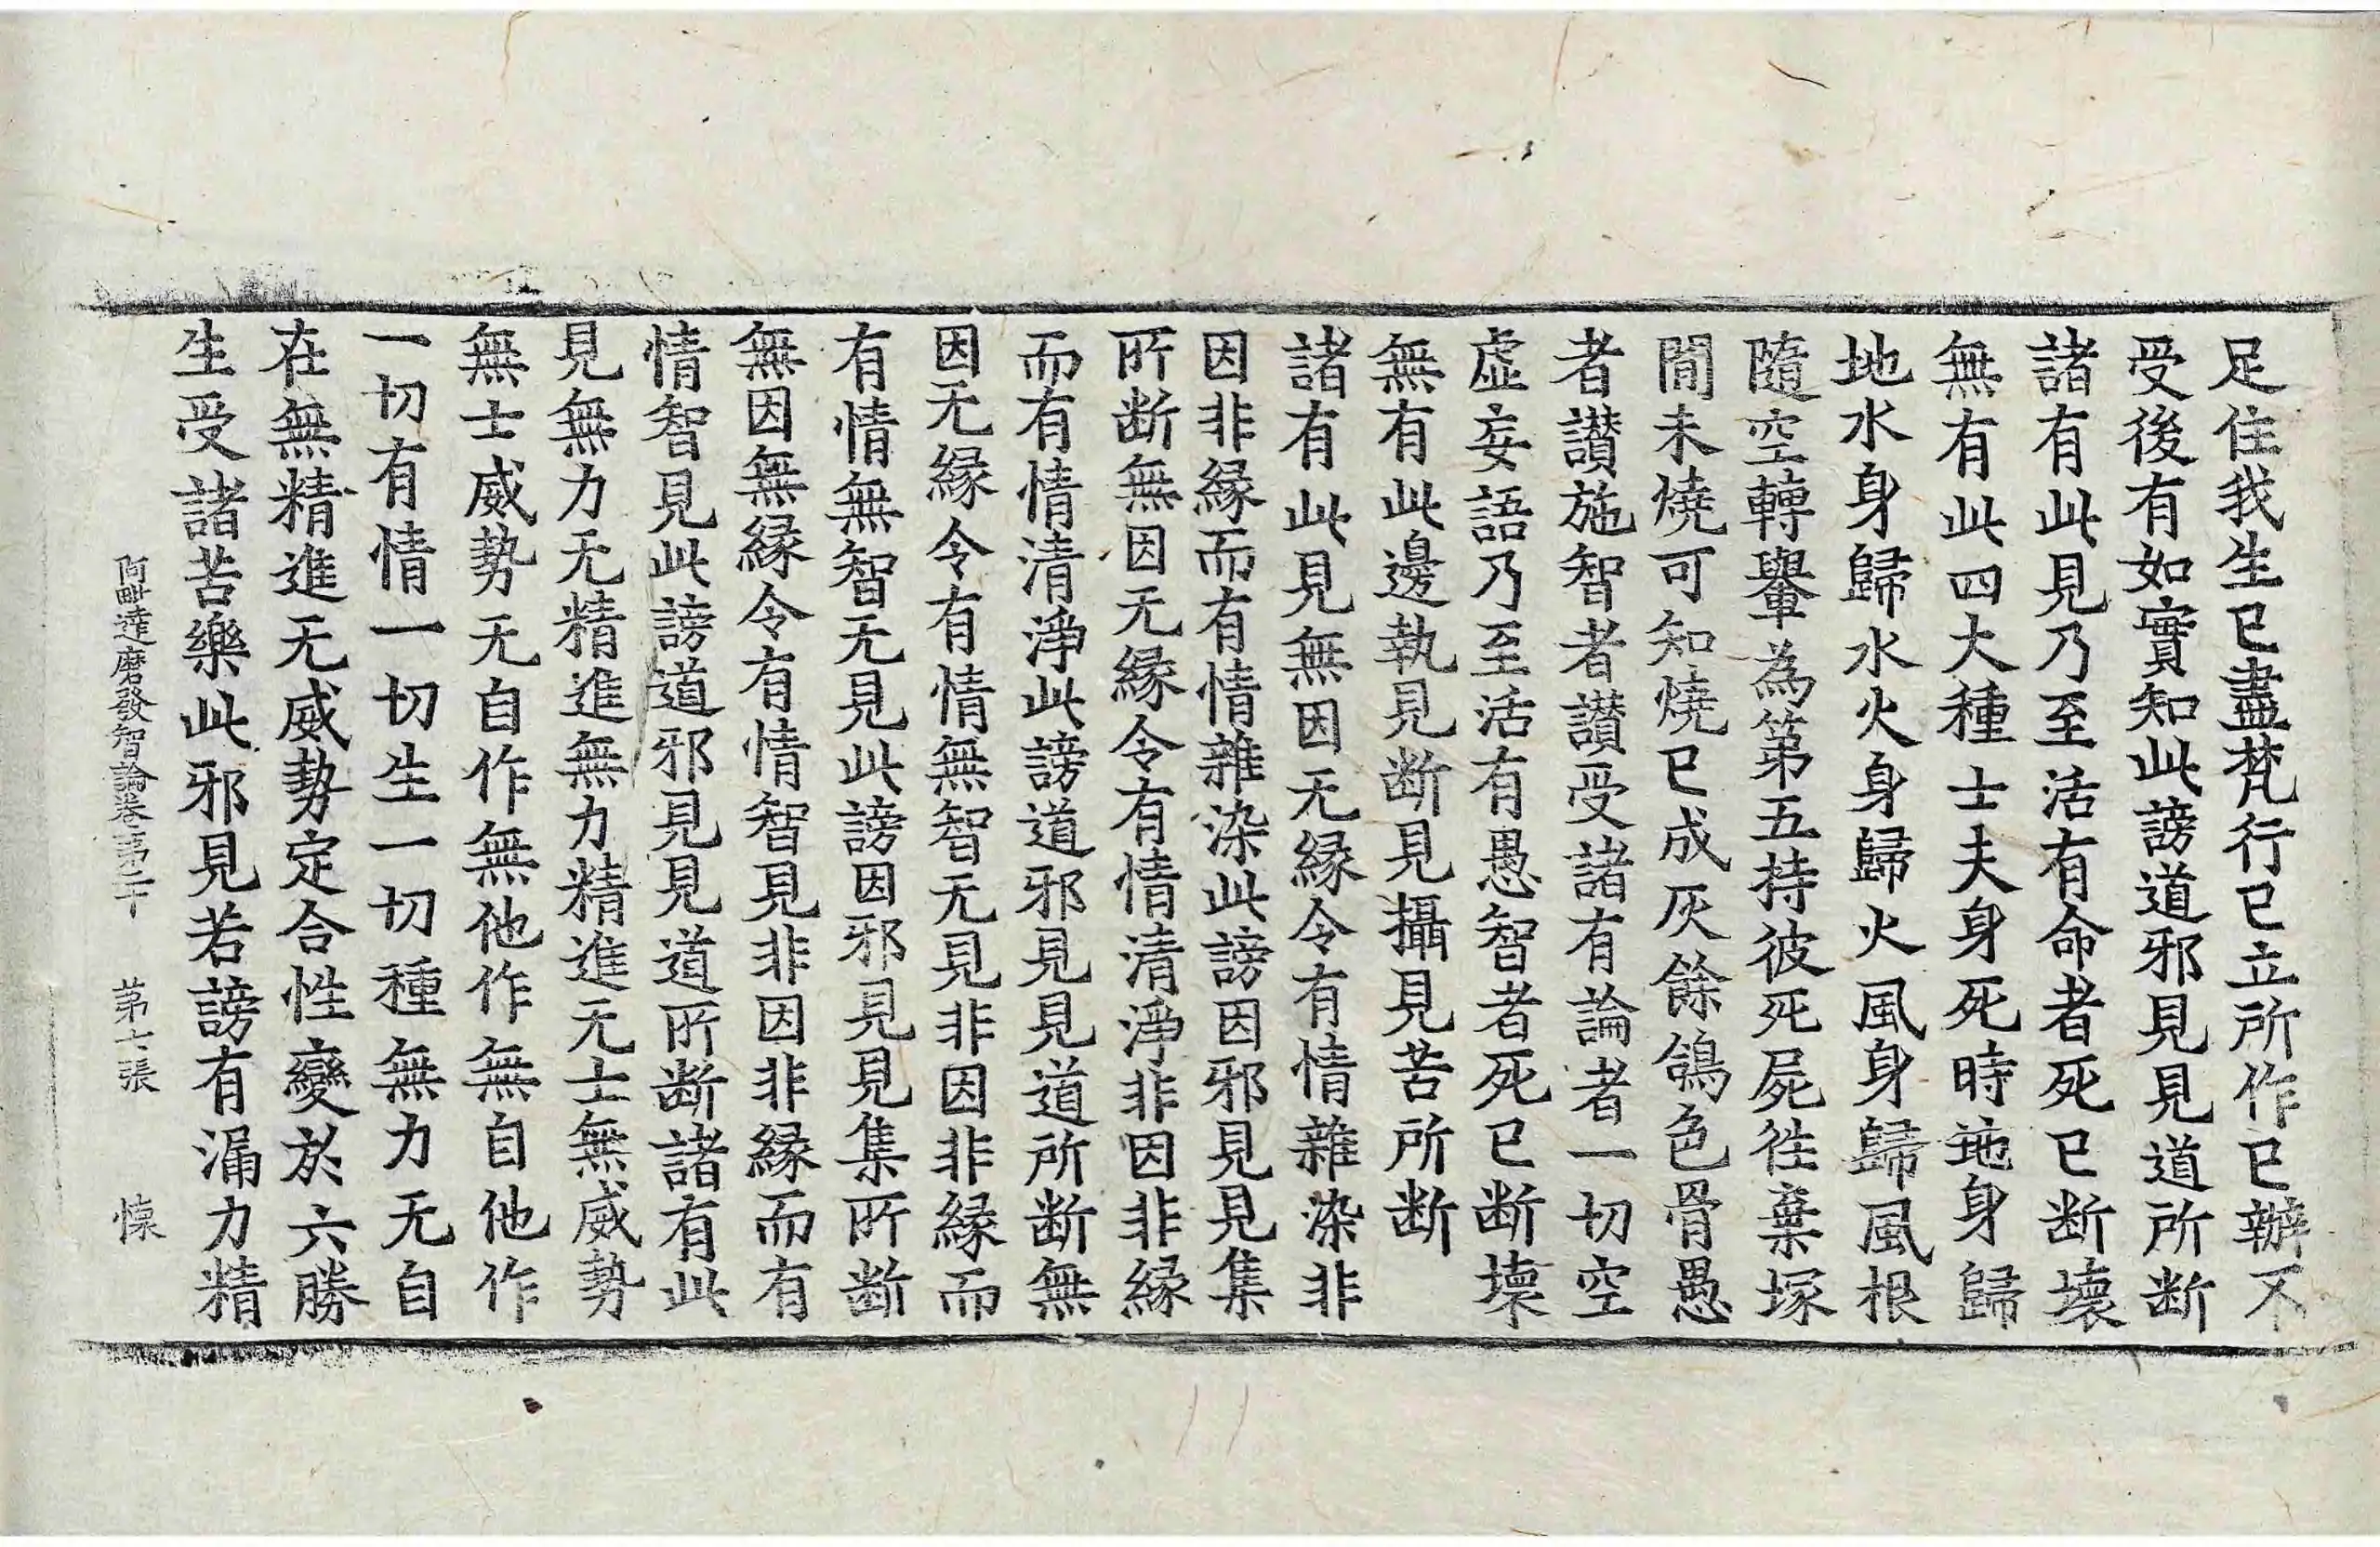 足住我生已盡梵行已立所作已辦不
受後有如實知此謗道邪見見道所断
諸有此見乃至活有命者死已断壞
無有此四大種士夫身死時地身歸
地水身歸水火身歸火風身歸風根
隨空轉轝為第五持彼死屍徃棄塚
閒未燒可知燒已成灰餘鴿色骨愚
者讃施智者讃受諸有論者一切空
虛妄語乃至活有愚智者死已断壞
無有此邊執見断見攝見苦所断
諸有此見無因无縁令有情雜染非
因非縁而有情雜染此謗因邪見見集
所断無因无縁令有情清淨非因非縁
而有情清淨此謗道邪見見道所断無
因无縁令有情無智无見非因非縁而
有情無智无見此謗因邪見見集所断
無因無縁令有情智見非因非縁而有
情智見此謗道邪見見道所断諸有此
見無力无精進無力精進无士無威勢
無士威勢无自作無他作無自他作
一切有情一切生一切種無力无自
在無精進无威勢定合性變於六勝
生受諸苦樂此邪見若謗有漏力精
阿毗達磨發智論卷第二十　第七張　懍